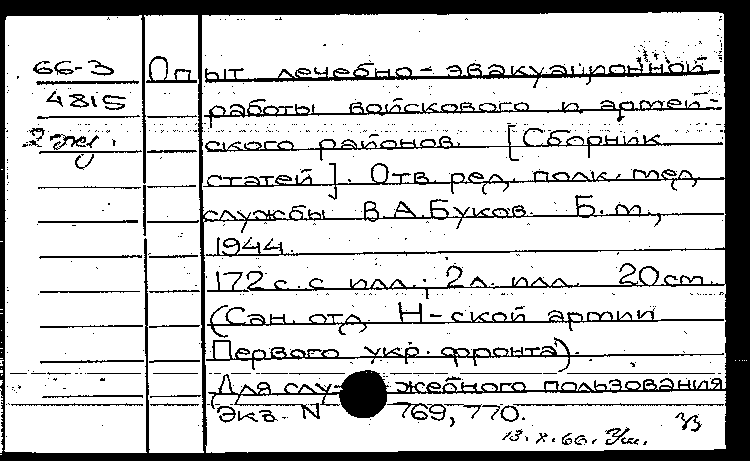 66-3 Опыт лечебно-эвакуационной
4815 работы войскового и армей-
2 экз. ского районов. [Сборник
статей]. Отв. ред. полк. мед.
службы В.А.Буков. Б.м.,
1944.
172 с. с илл.; 2 л. илл. 20 см.
(Сан. отд. Н-ской армии
Первого укр. фронта).
Для слу-жебного пользования
Экз. N 769, 770.
13.X.66.